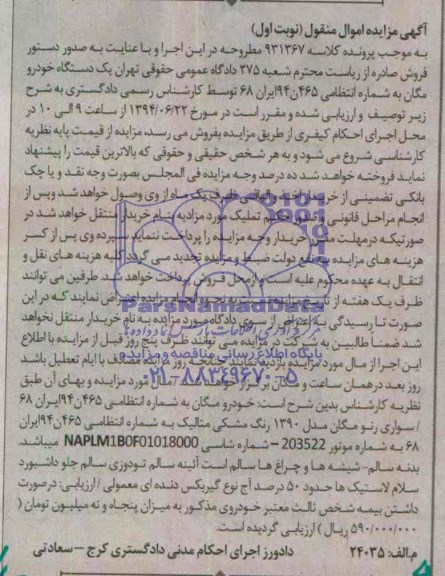 آگهی مزایده اموال منقول (نوبت اول)
به موجب پرونده کلاسه ۹۳۱۳۶۷ مطروحه در این اجرا و با عنایت به صدور دستور
فروش صادره از ریاست محترم شعبه ۲۷۵ دادگاه عمومی حقوقی تهران یک دستگاه خودرو
مگان به شماره انتظامی ۴۶۵ن۹۴ایران ۶۸ توسط کارشناس رسمی دادگستری به شرح
زیر توصیف و ارزیابی شده و مقرر است در مورخ ۱۳۹۴/۰۶/۲۲ از ساعت ۹ الی ۱۰ در
محل اجرای احکام کیفری از طریق مزایده بفروش می رسد، مزایده از قیمت پایه نظریه
کارشناسی شروع می شود و به هر شخص حقیقی و حقوقی که بالاترین قیمت را پیشنهاد
نماید فروخته خواهد شد ده درصد وجه مزایده فی المجلس بصورت وجه نقد و یا چک
بانکی تضمینی از خریدار اخذ و الباقی ظرف یک ماه از وی وصول خواهد شد و پس از
انجام مراحل قانونی تملیک مورد مزایده بنام خریدار منتقل خواهد شد در
صورتیکه در مهلت مقرر خریدار وجه مزایده را پرداخت ننماید سپرده وی پس از کسر
هزینه های مزایده به نفع دولت ضبط و مزایده تجدید می گردد کلیه هزینه های نقل و
انتقال به عهده محکوم علیه است و از محل فروش پرداخت خواهد شد. طرفین می توانند
ظرف یک هفته از تاریخ مزایده نسبت به نحوه انجام مزایده اعتراض نمایند که در این
صورت تا رسیدگی به اعتراض از سوی دادگاه مورد مزایده به نام خریدار منتقل نخواهد
شد ضمنا طالبین به شرکت در مزایده می توانند ظرف پنج روز قبل از مزایده با اطلاع
این اجرا از مال مورد مزایده بازدید نمایند چنانچه روز مزایده مصادف با ایام تعطیل باشد
روز بعد در همان ساعت و مکان برگزار خواهد شد مورد مزایده و بهای آن طبق
نظریه کارشناس بدین شرح است: خودرو مگان به شماره انتظامی ۴۶۵ن۹۴ایران ۶۸
/سواری رنو مگان مدل ۱۳۹۰ رنگ مشکی متالیک به شماره انتظامی ۴۶۵ن۹۴ایران
۶۸ به شماره موتور 203522 – شماره شاسی NAPLM1B0F01018000 میباشد.
بدنه سالم-شیشه ها و چراغ ها سالم است آئینه سالم تودوزی سالم جلو داشبورد
سلام لاستیک ها حدود ۵۰ درصد آج نوع گیربکس دنده ای معمولی / ارزیابی: درصورت
داشتن بیمه شخص ثالث معتبر خودروی مذکور به میزان پنجاه و نه میلیون تومان (
۵۹۰/۰۰۰/۰۰۰ ریال) ارزیابی گردیده است.
م.الف: ۲۴۰۳۵ دادورز اجرای احکام مدنی دادگستری کرج – سعادتی
ParsNamadData
پایگاه اطلاع رسانی مناقصه و مزایده
۰۲۱-۸۸۳۴۹۶۷۰-۵